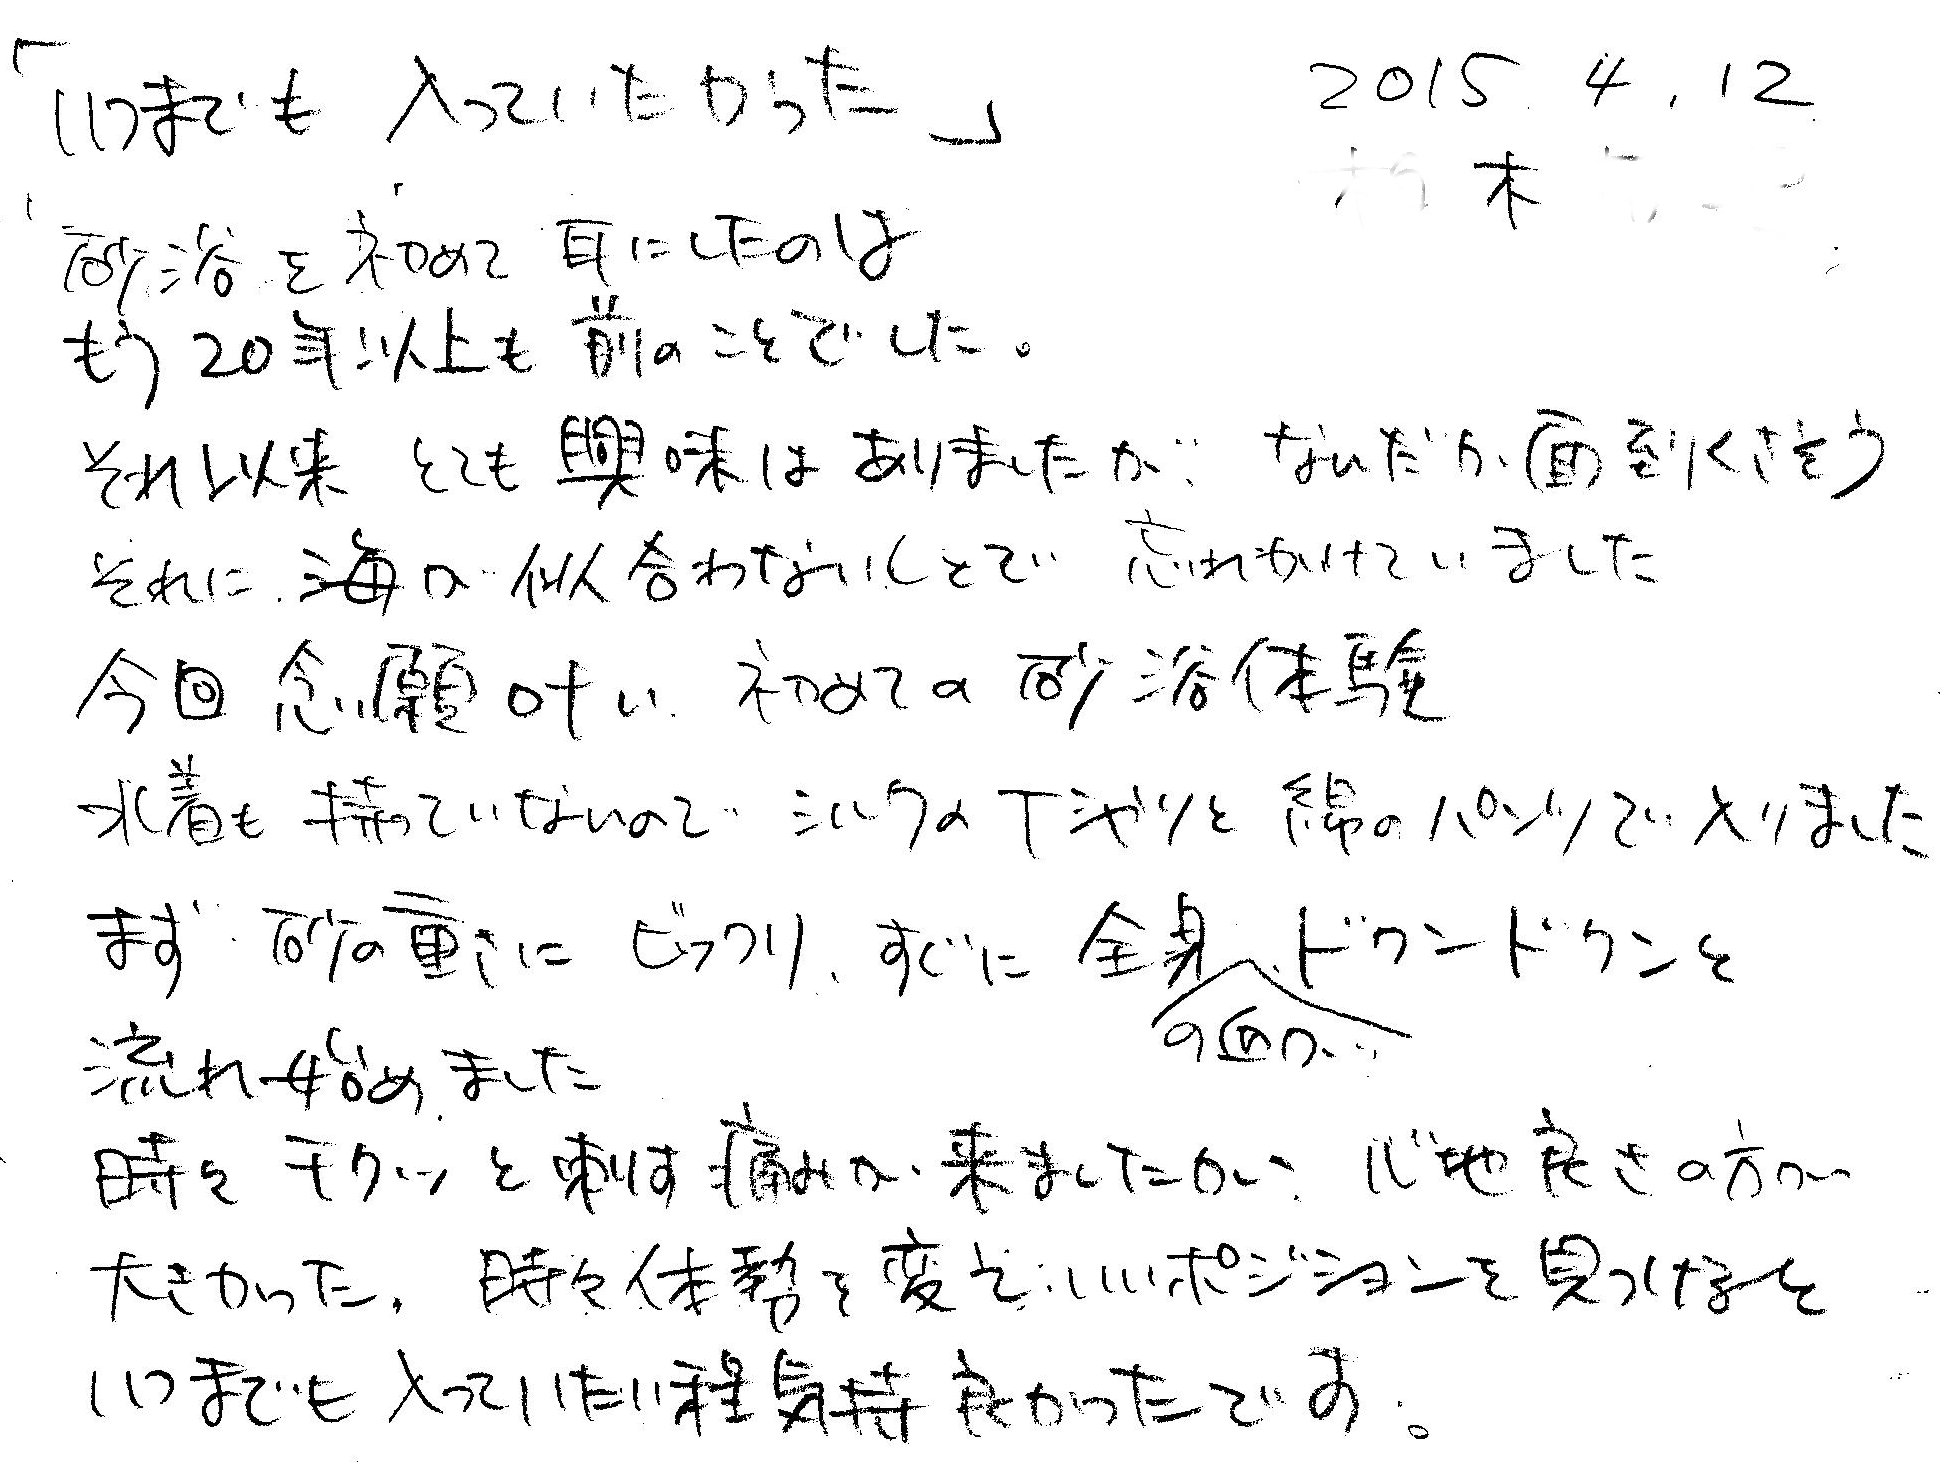 「いつまでも 入っていたかった」 2015.4.12
木
砂浴を初めて耳にしたのは
もう20年以上も前のことでした。
それ以来 とても興味はありましたが なんだか面到くさそう
それに 海が似合わないしとで 忘れかけていました
今回 念願叶い 初めての砂浴体験
水着も持っていないので シルクのTシャツと綿のパンツで入りました
まず 砂の重さに ビックリ、すぐに 全身の血が ドクンドクンと
流れ始めました
時々 チクッと刺す痛みが来ましたがい 心地良さの方が
大きかった、時々体勢を変え いいポジションを見つけると
いつまでも入っていたい程気持良かったです。